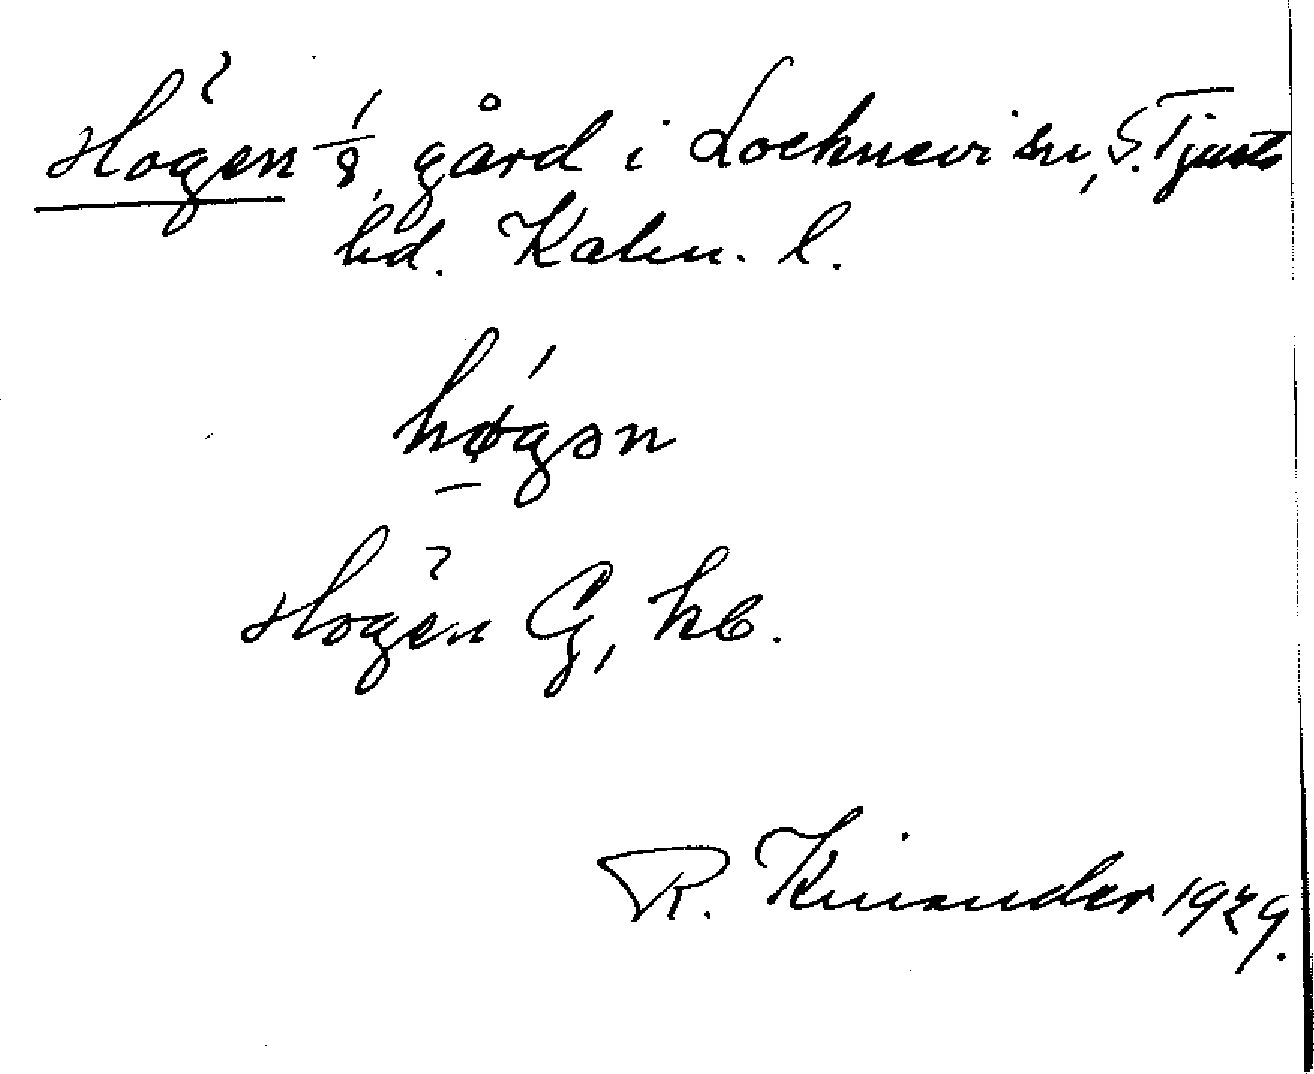 Högen 1/8 gård i Locknevi sn, S. Tjusts
hd. Kalm. l.
høgən
Högen G, kb.
R. Kinander 1929.